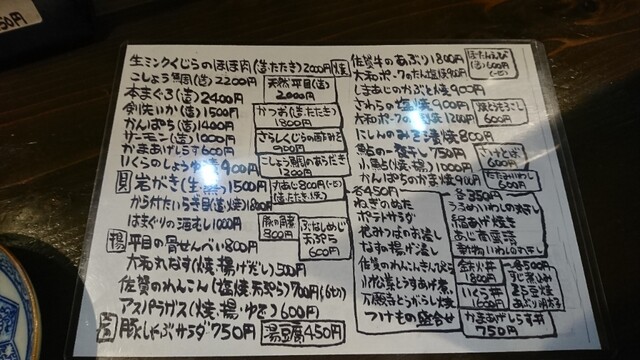 50円
生ミンクくじらのほほ肉(造・たたき)2000円 焼
こしょう鯛(造)2200円
天然平目(造)
2,000円
本まぐろ(造)2400円
剣先いか(造)1500円
かつお(造・たたき)
1800円
かんぱち(造)1400円
サーモン(造)1000円
さらしくじらの酢みそ
900円
かまあげしらす600円
いくらのしょうゆ漬900円
こしょう鯛のあらだき
1200円
貝 岩がき(生・蒸)1500円
丸あじ800円
(造・たたき・焼)
から付たいらぎ貝(造・焼)1800円
はまぐりの酒むし1000円
豚の角煮
800円
ぶなしめじ
天ぷら
600円
揚 平目の骨せんべい800円
大和丸なす(焼・揚げだし)500円
佐賀のれんこん(塩焼・天ぷら)700円
アスパラガス(焼・揚・ゆで)600円
豚しゃぶサラダ750円
湯豆腐450円
佐賀牛のあぶり1800円
ぼたんえび
(造)600円
大和ポークのたん塩焼900円
しまあじのかぶと焼900円
さわらの塩焼900円
焼とうもろこし
600円
大和ポークの 焼1200円
にしんのみそ漬焼800円
鮎の一夜干し750円
さけとば
600円
小鮎(焼・揚)1000円
かんぱちのかま焼900円
たたみいわし
600円
各450円
ねぎのぬた
ポテトサラダ
地みつばのお浸し
なすの揚げ浸し
佐賀のれんこんきんぴら
小松菜とうすあげ煮
万願寺とうがらし焼
つけもの盛合せ
各350円
うるめいわしの丸干し
絹あげ焼き
あじ南蛮漬
いくら丼
かまあげしらす丼
750円
各500円